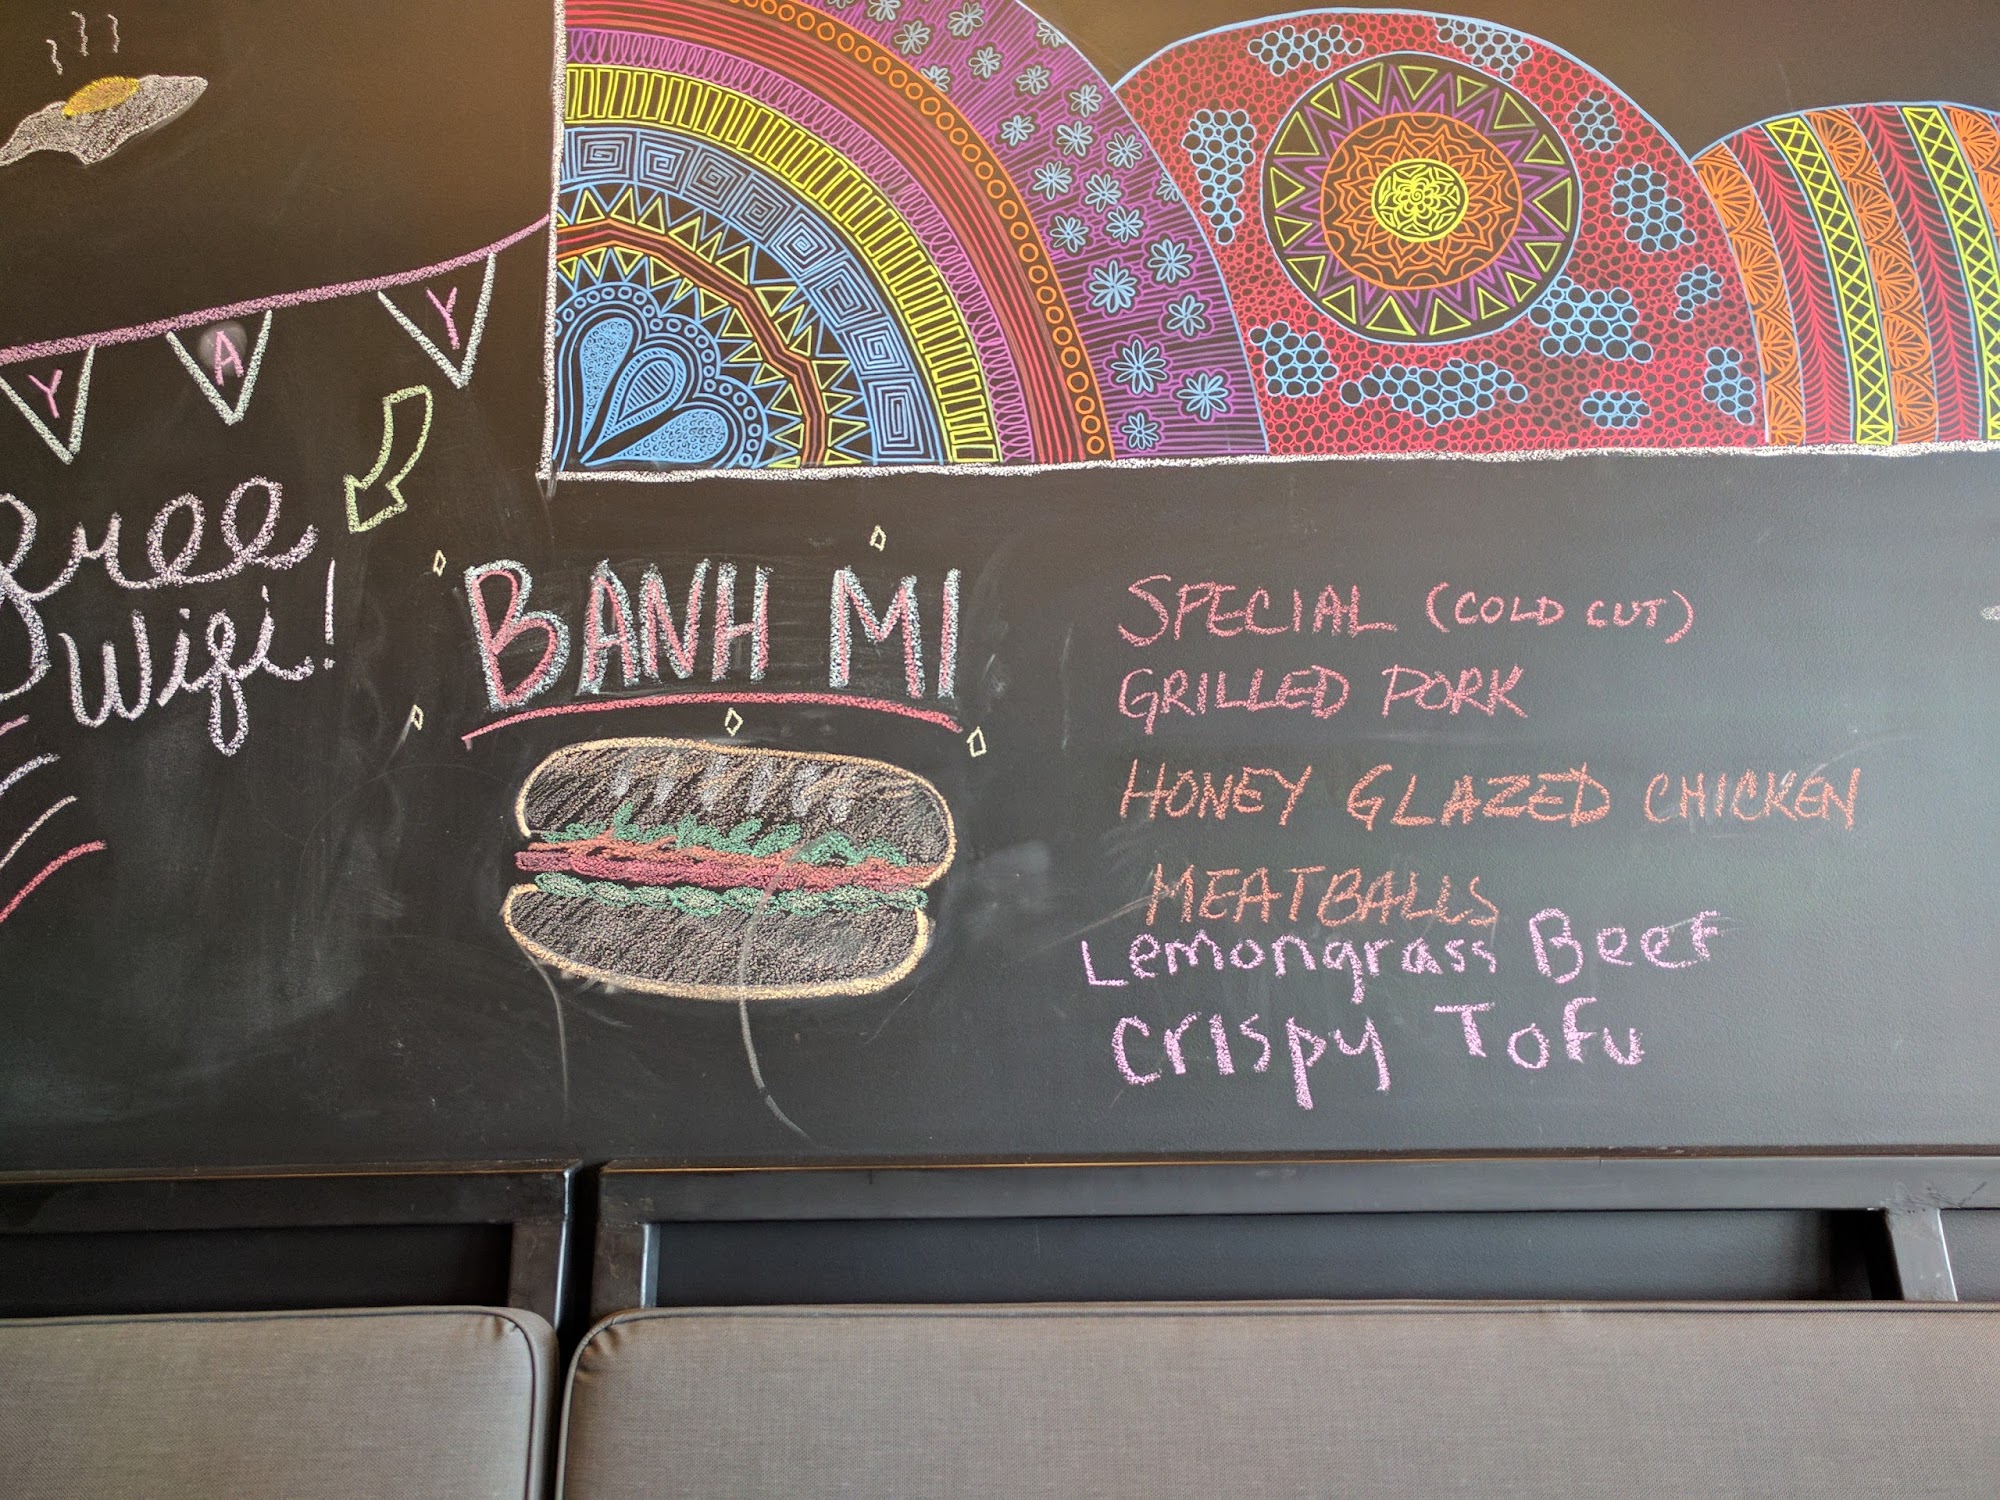 YAY
Free
Wifi!
BANH MI
SPECIAL (COLD CUT)
GRILLED PORK
HONEY GLAZED CHICKEN
MEATBALLS
Lemongrass Beef
Crispy Tofu